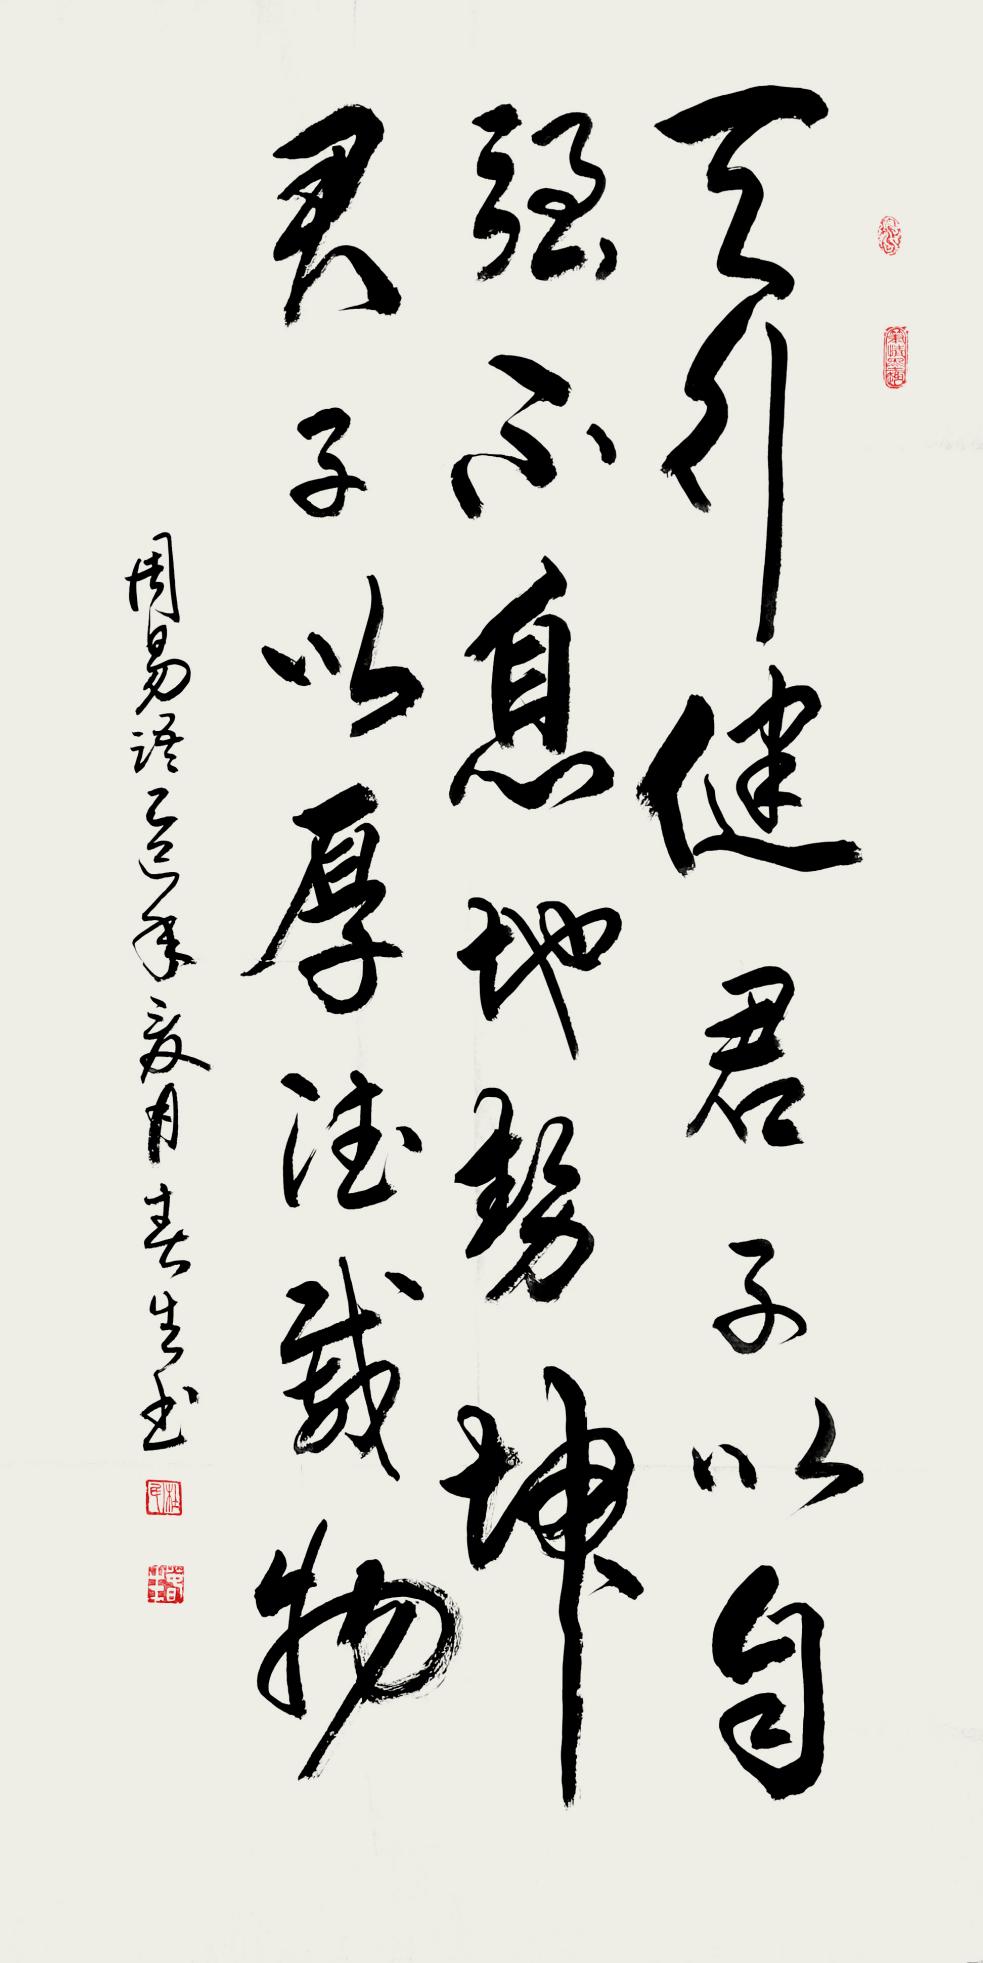 天行健君子以自
强不息地势坤
君子以厚德载物
周易语乙巳年夏月春生书